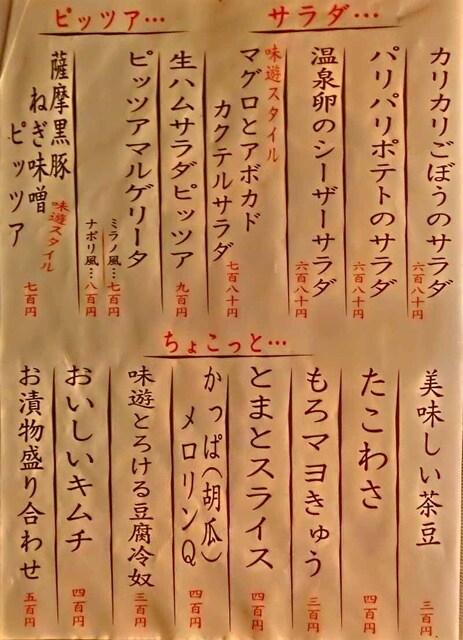 サラダ…
カリカリごぼうのサラダ
六百八十円
パリパリポテトのサラダ
六百八十円
温泉卵のシーザーサラダ
六百八十円
味遊スタイル
マグロとアボカド
カクテルサラダ
七百八十円
ピッツア…
生ハムサラダピッツア
九百円
ピッツアマルゲリータ
ミラノ風…七百円
ナポリ風…八百円
薩摩黒豚
ねぎ味噌
ピッツア
味遊スタイル
七百円
ちょこっと…
美味しい茶豆
三百円
たこわさ
四百円
もろマヨきゅう
三百円
とまとスライス
四百円
かっぱ(胡瓜)
メロリンQ
四百円
味遊とろける豆腐冷奴
三百円
おいしいキムチ
四百円
お漬物盛り合わせ
五百円